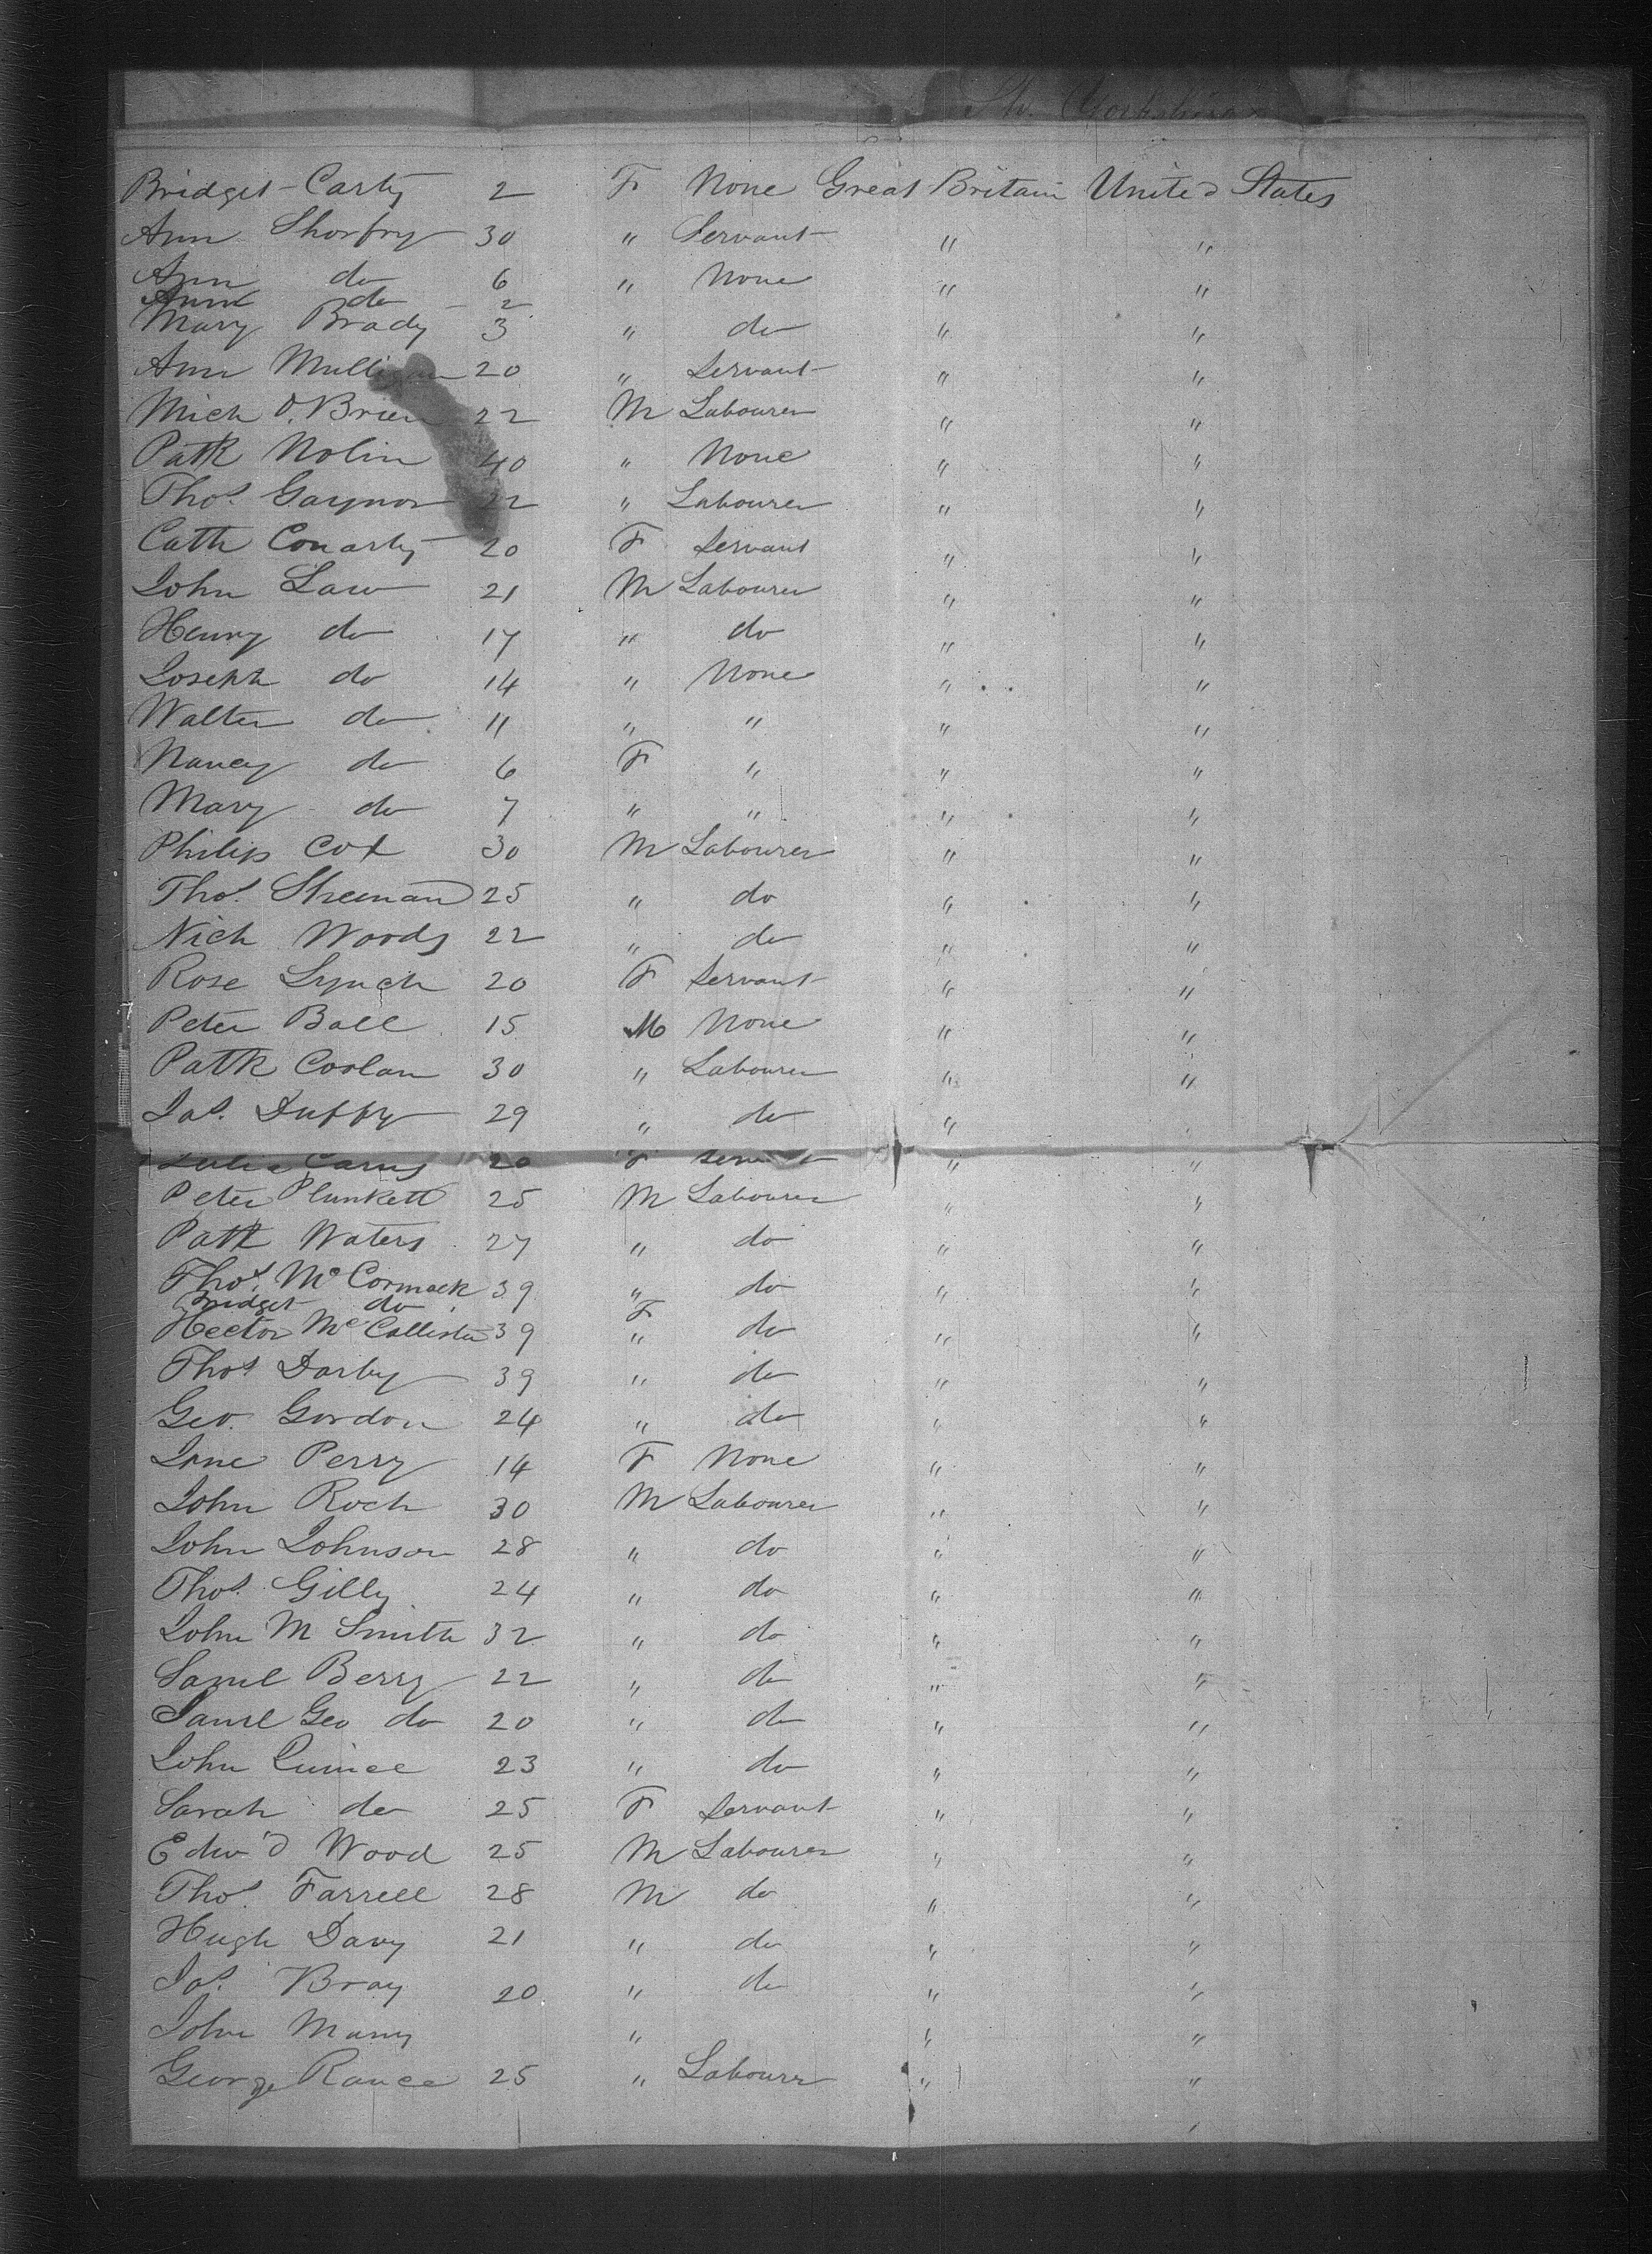 Sh. Yorkshire
Bridget Carty 2 F None Great Britain United States
Ann Shorfry 30 " Servant " "
Ann do 6 " None " "
Ann do 2
Mary Brady 3 " do " "
Ann Mulligan 20 " Servant " "
Mich O'Brien 22 M Labourer " "
Patk Nolin 40 " None " "
Thos. Gaynor 22 " Labourer " "
Cath Conarty 20 F Servant " "
John Law 21 M Labourer " "
Henry do 17 " do " "
Joseph do 14 " None " "
Walter do 11 " " " "
Nancy do 6 F " " "
Mary do 7 " " " "
Philip Cox 30 M Labourer " "
Thos. Sheenan 25 " do " "
Nich Woods 22 " do " "
Rose Lynch 20 F Servant " "
Peter Ball 15 M None " "
Patk Coolan 30 " Labourer " "
Jas. Duffy 29 " do "
Julia 20 F Servant " "
Peter Plunkett 25 M Labourer " "
Patk Waters 27 " do " "
Thos. McCormack 39 " do " "
Bridget do F
Hector McCallister 39 " do " "
Thos Darby 39 " do " "
Geo. Gordon 24 " do " "
Jane Perry 14 F None " "
John Roch 30 M Labourer " "
John Johnson 28 " do " "
Thos. Gilly 24 " do " "
John M Smith 32 " do " "
Saml Berry 22 " do " "
Saml Geo do 20 " do " "
John 23 " do " "
Sarah do 25 F Servant " "
Edw'd Wood 25 M Labourer " "
Thos. Farrell 28 M do " "
Hugh Davy 21 " do " "
Jas. Bray 20 " do " "
John Many " " "
George Rance 25 " Labourer " "
"